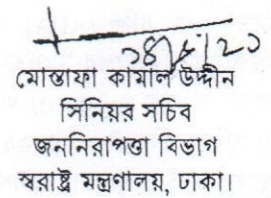 মোস্তাফা কামাল উদ্দীন
সিনিয়র সচিব
জননিরাপত্তা বিভাগ
স্বরাষ্ট্র মন্ত্রণালয়, ঢাকা।